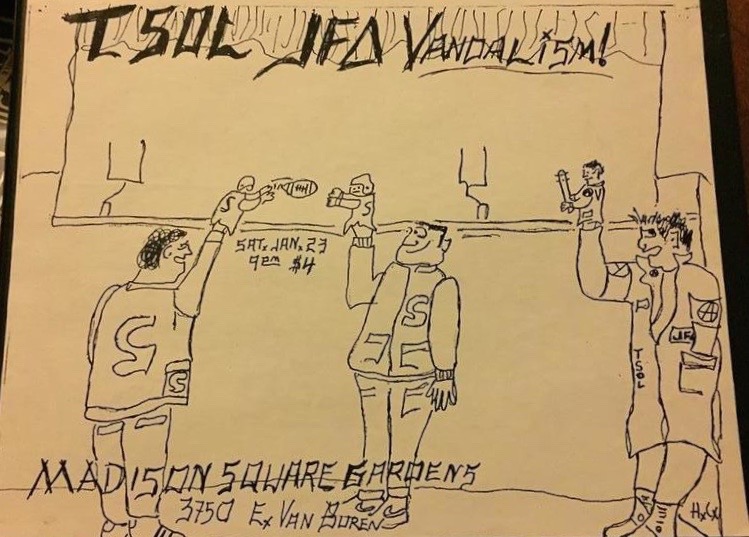 TSOL JFA VANDALISM!
SAT. JAN. 23
9pm $4
S
S
S
S
S
TSOL
JF
A
MADISON SQUARE GARDENS
3750 E. VAN BUREN
HxCx